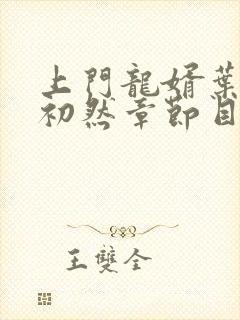 上門龍婿葉
初然章節目
王雙全